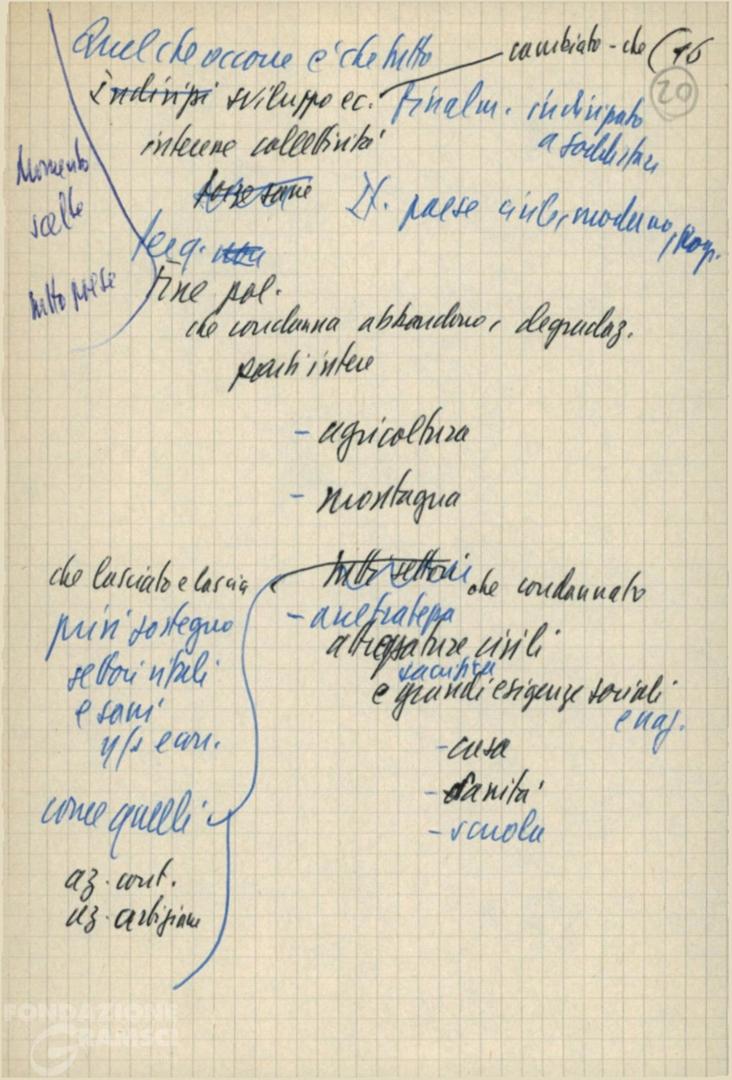 Quel che occorre è che tutto
cambiato - che (16
20
indirizzi sviluppo ec.
finalm. indirizzato
interene collettività
a soddisfare
forze sane
paese civile, moderno, prog.
Momento
scelte
tutto paese
Fine pol.
che condanna abbandono, degradaz.
parti intere
- agricoltura
- montagna
che lasciato e lascia
tutti settori che condannato
privi sostegno
- arretratezza
settori vitali
attrezzature civili
e sani
sacrifica
e grandi esigenze sociali
e naz.
n/s econ.
- casa
- sanità
- scuola
come quelli
az. cont.
az. artigiane
FONDAZIONE
GRAMSCI